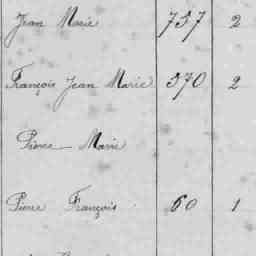 Jean Marie 757 2
François Jean Marie 570 2
Pierre Marie
Pierre François 60 1